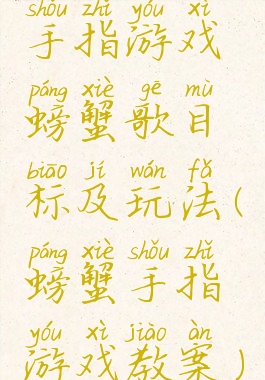 shǒu zhǐ yóu xì
手指游戏
páng xiè gē mù
螃蟹歌目
biāo jí wán fǎ
标及玩法(
páng xiè shǒu zhǐ
螃蟹手指
yóu xì jiào àn
游戏教案)